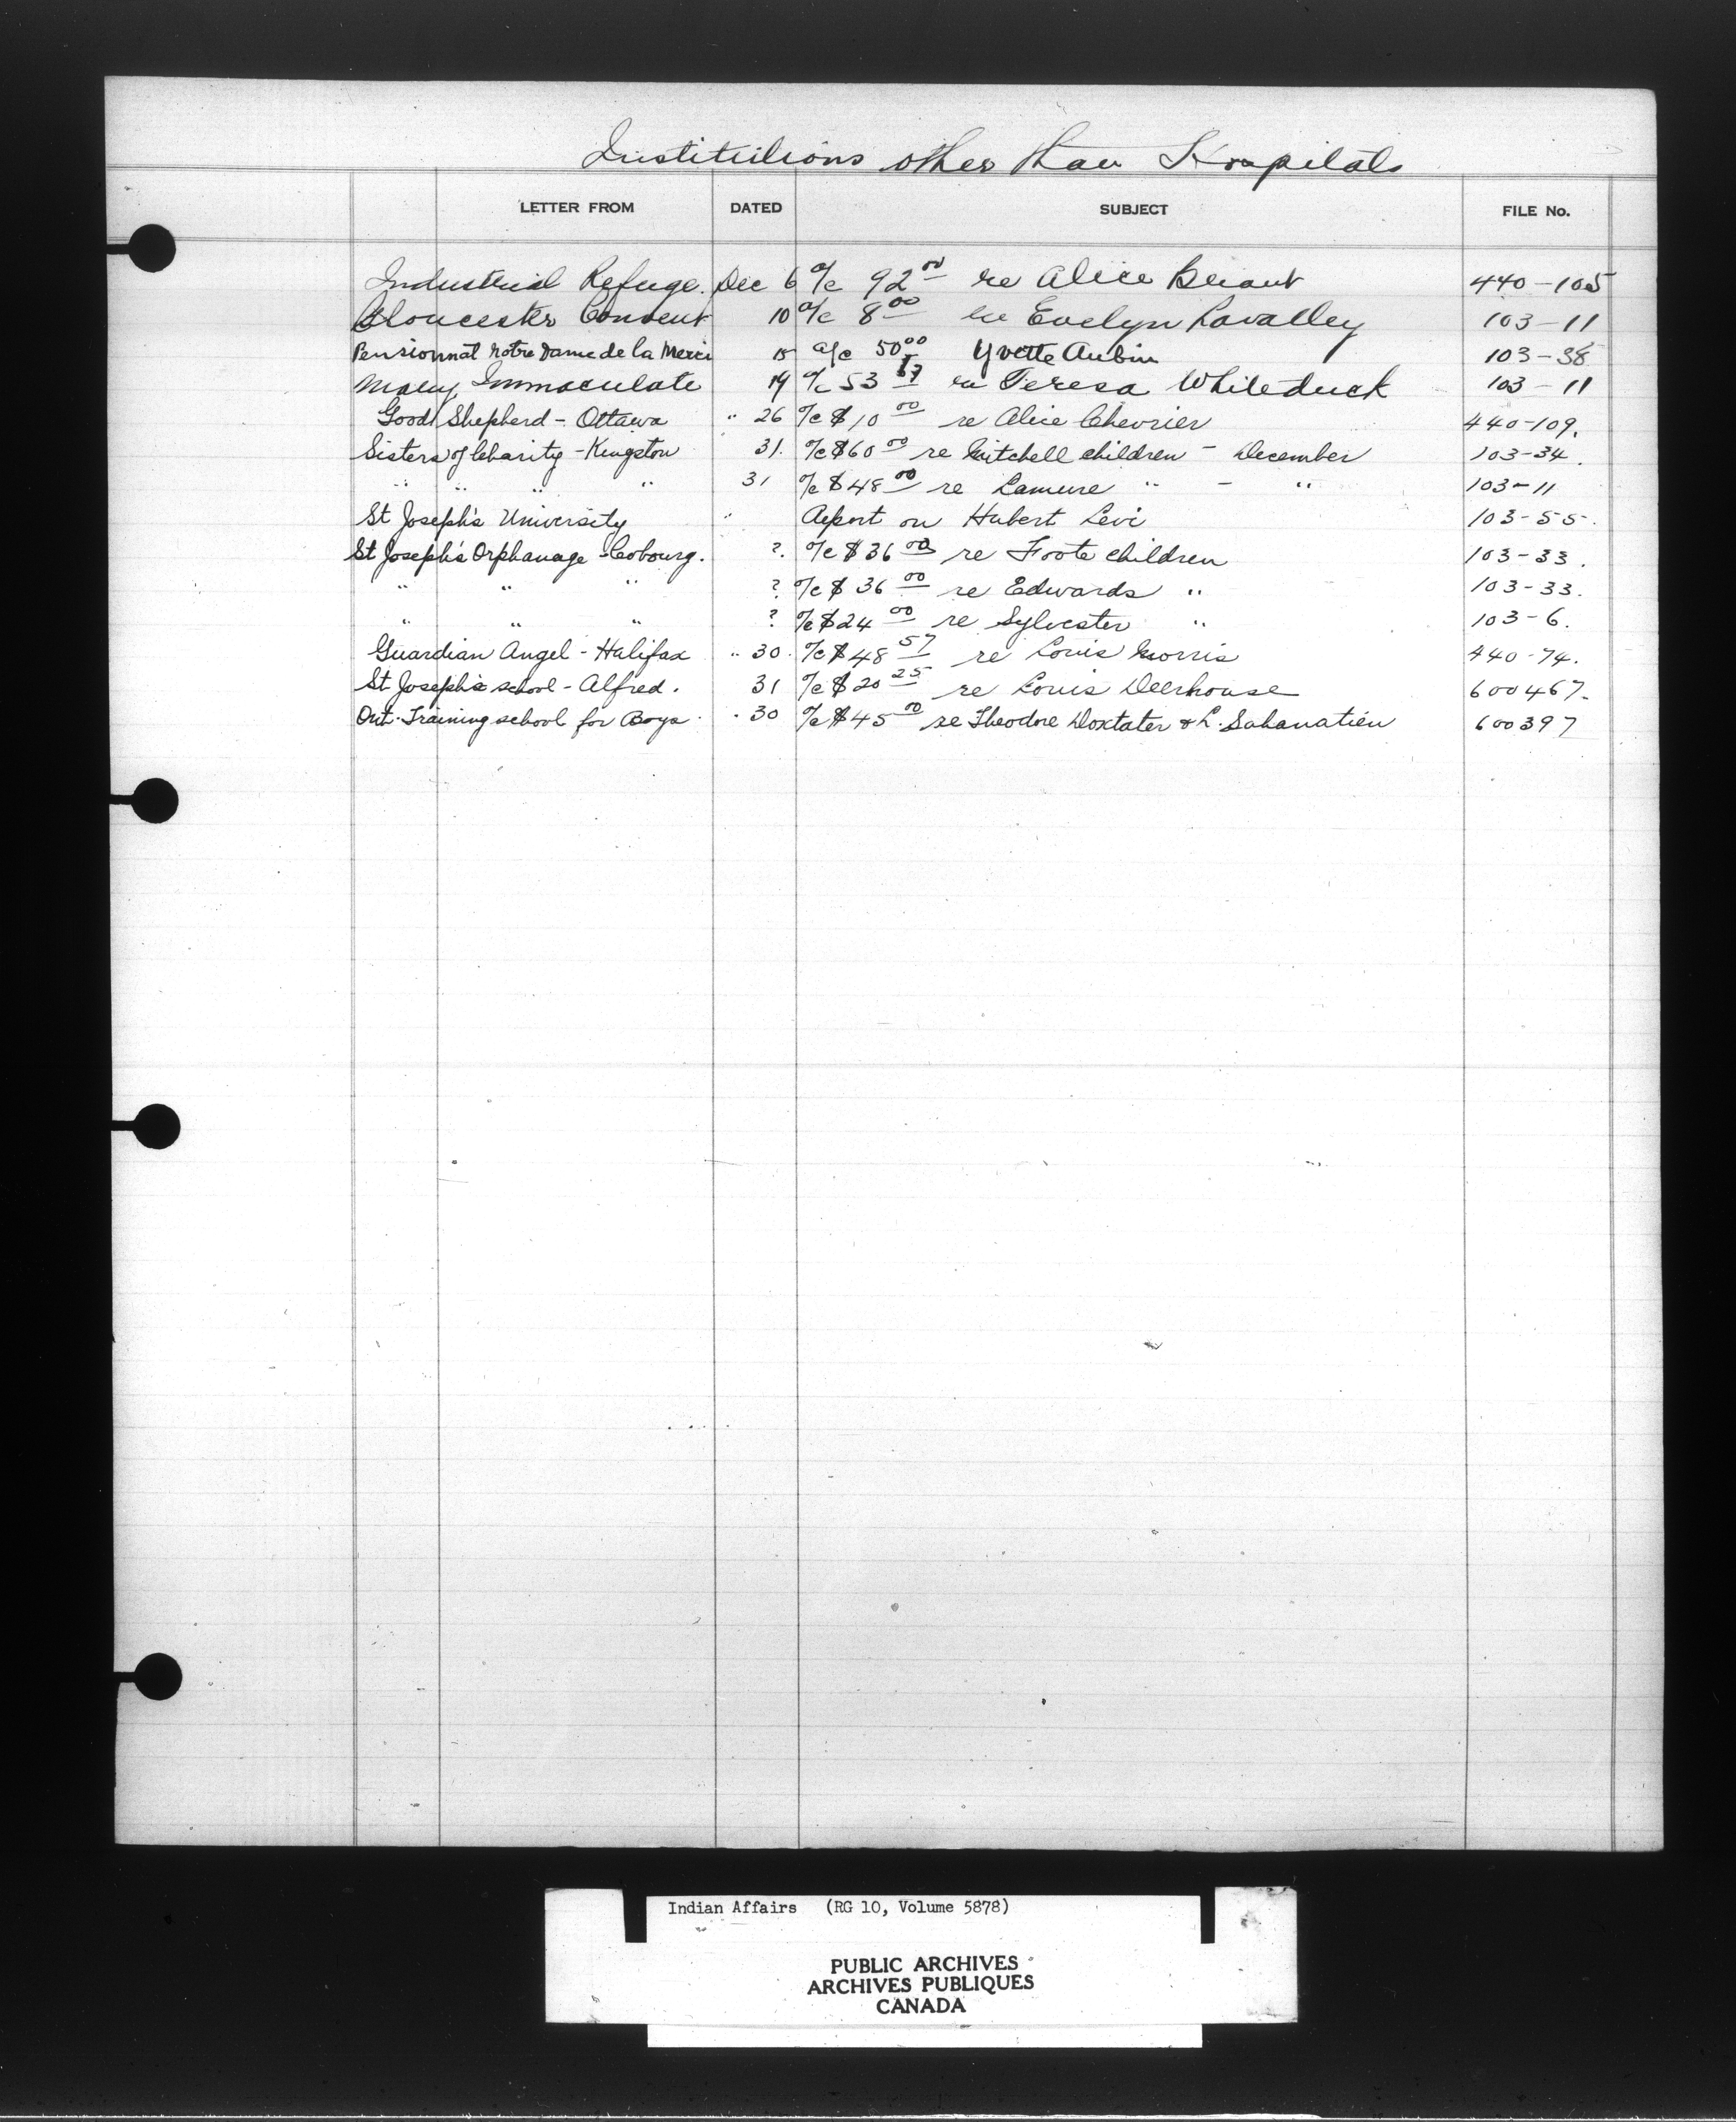 Institutions other than Hospitals
LETTER FROM DATED SUBJECT FILE No.
Industrial Refuge. Dec 6 a/c 92 00 re Alice 440-105
Gloucester Convent 10 a/c 8 00 re Evelyn Lavalley 103-11
Pensionnat Notre Dame de la Merci 15 a/c 50 00 Yvette Aubin 103-38
Mary Immaculate 19 a/c 53 re Teresa Whiteduck 103-11
Good Shepherd - Ottawa " 26 a/c $10 00 re Alice Chevrier 440-109.
Sisters of Charity - Kingston 31. a/c $60 00 re Mitchell children - December 103-34.
" " " " 31 a/c $48 00 re " - " 103-11
St Joseph's University " Report on Hubert Levi 103-55.
St Joseph's Orphanage - Cobourg. ?. a/c $36 00 re Foote children 103-33.
" " " ? a/c $36 00 re Edwards " 103-33.
" " " ? a/c $24 00 re Sylvester " 103-6.
Guardian Angel - Halifax " 30. a/c $48 57 re Louis Morris 440-74.
St. Joseph's school - Alfred. 31 a/c $20 25 re Louis Deerhouse 600467.
Ont. Training school for Boys. " 30 a/c $45 00 re Theodore Doxtater & L. Sahanatien 600397
Indian Affairs (RG 10, Volume 5878)
PUBLIC ARCHIVES
ARCHIVES PUBLIQUES
CANADA